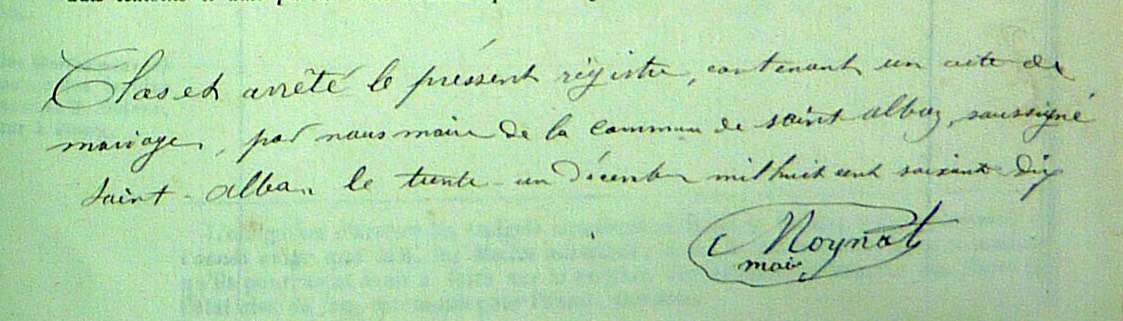 Clos et arrêté le présent régistre, contenant un acte de
mariage, par nous maire de la commune de saint alban, soussigné
saint-alban le trente-un décembre mil huit cent soixante dix
Moynat
maire